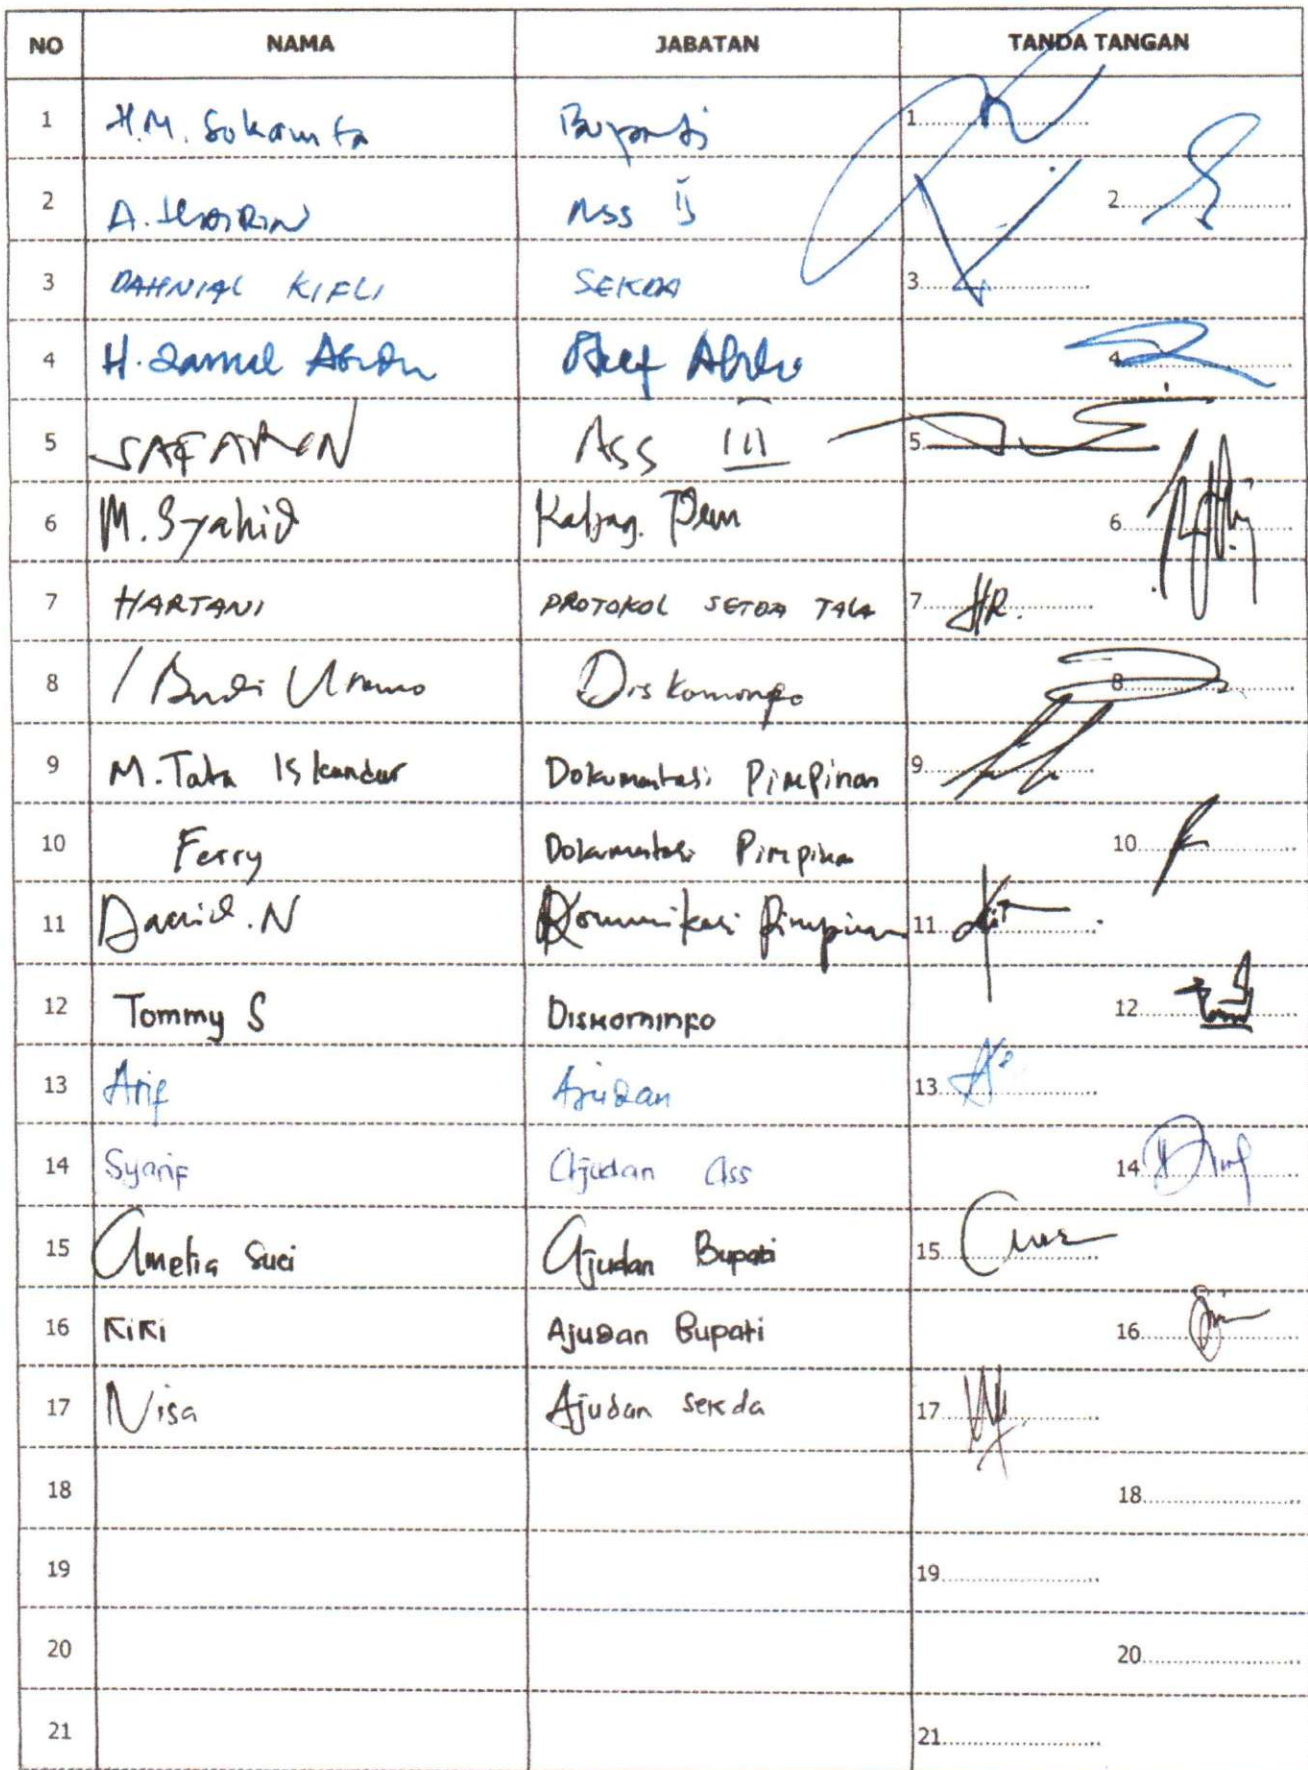 NO NAMA JABATAN TANDA TANGAN
1 H.M. Sukamta Bupati 1
2 A. HAIRIN Ass II 2
3 DAHNIAL KIFLI SEKDA 3
4 H. Zainal Abidin Staf Ahli 4
5 SAFARIN Ass III 5
6 M. Syahid Kabag. Pem 6
7 HARTANI PROTOKOL SETDA TALA 7 HR.
8 Budi Utomo Diskominfo 8
9 M. Tata Iskandar Dokumentasi Pimpinan 9
10 Ferry Dokumentasi Pimpinan 10
11 David. N Komunikasi Pimpinan 11
12 Tommy S DISKOMINFO 12
13 Arif Ajudan 13
14 Syarif Ajudan Ass 14
15 Amelia Suci Ajudan Bupati 15
16 KiKi Ajudan Bupati 16
17 Nisa Ajudan sekda 17
18 18
19 19
20 20
21 21